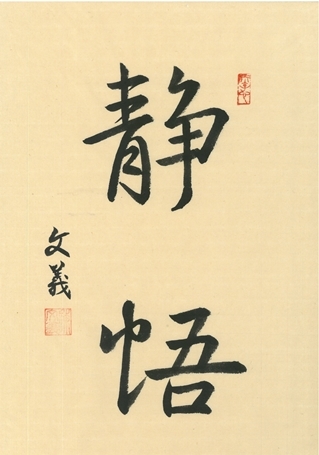 静悟
文義